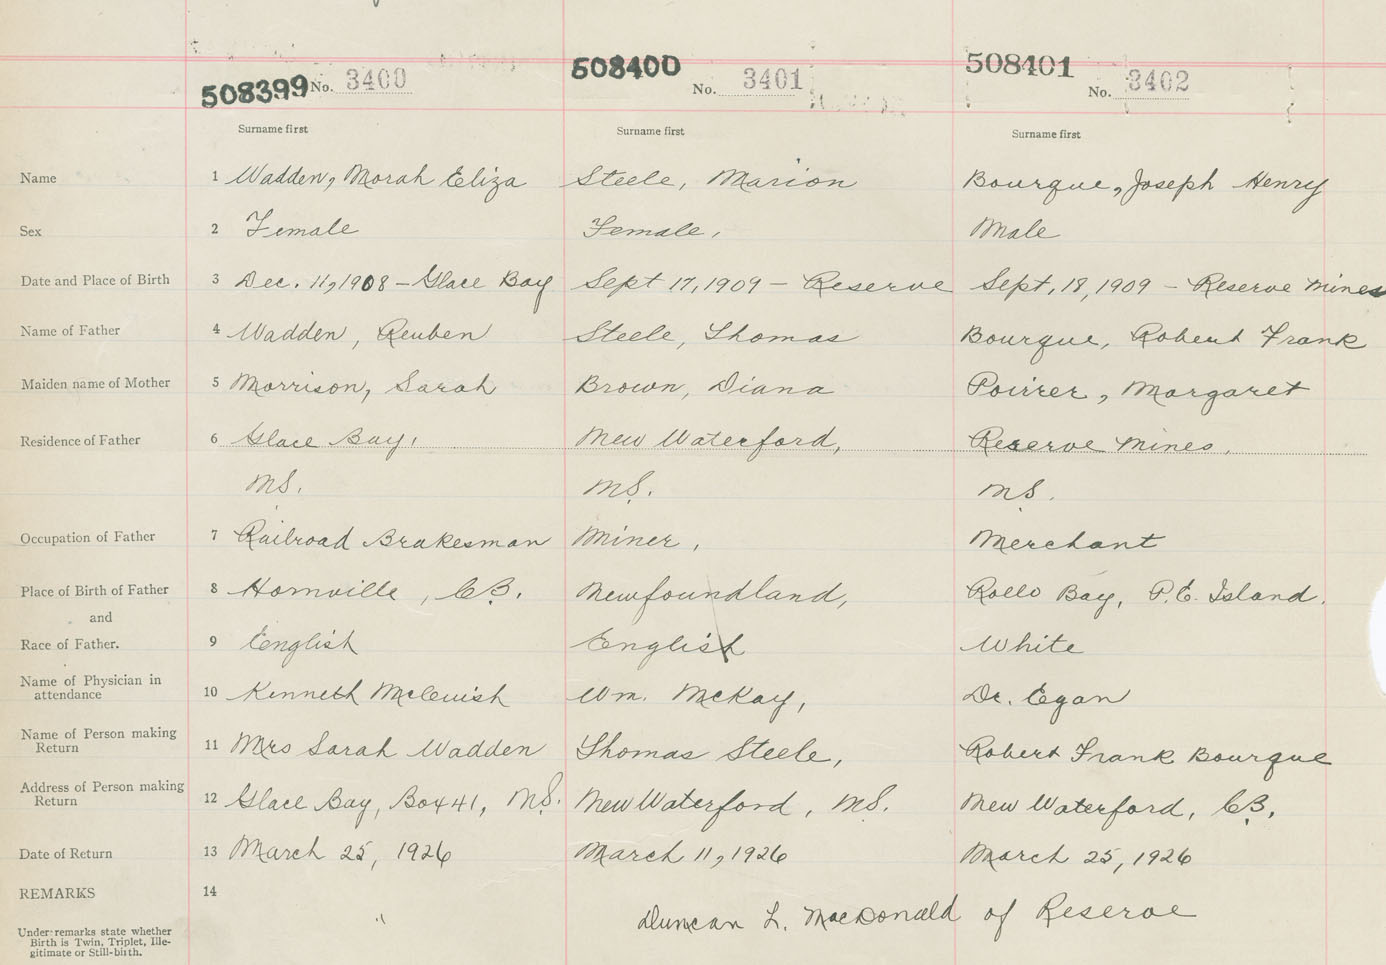 508399 No. 3400 508400 No. 3401 508401 No. 3402
Surname first Surname first Surname first
Name 1 Wadden, Morah Eliza Steele, Marion Bourque, Joseph Henry
Sex 2 Female Female, Male
Date and Place of Birth 3 Dec. 11, 1908 – Glace Bay Sept 17, 1909 – Reserve Sept, 18, 1909 – Reserve Mines
Name of Father 4 Wadden, Reuben Steele, Thomas Bourque, Robert Frank
Maiden name of Mother 5 Morrison, Sarah Brown, Diana Poirier, Margaret
Residence of Father 6 Glace Bay, New Waterford, Reserve Mines,
N.S. N.S. N.S.
Occupation of Father 7 Railroad Brakesman Miner, Merchant
Place of Birth of Father 8 Hornville, C.B. Newfoundland, Rollo Bay, P.E. Island.
and
Race of Father. 9 English English White
Name of Physician in
attendance 10 Kenneth McCuish Wm. McKay, Dr. Egan
Name of Person making
Return 11 Mrs Sarah Wadden Thomas Steele, Robert Frank Bourque
Address of Person making
Return 12 Glace Bay, Box 41, N.S. New Waterford, N.S. New Waterford, C.B.
Date of Return 13 March 25, 1926 March 11, 1926 March 25, 1926
REMARKS 14
Duncan L. MacDonald of Reserve
Under remarks state whether
Birth is Twin, Triplet, Ille-
gitimate or Still-birth.